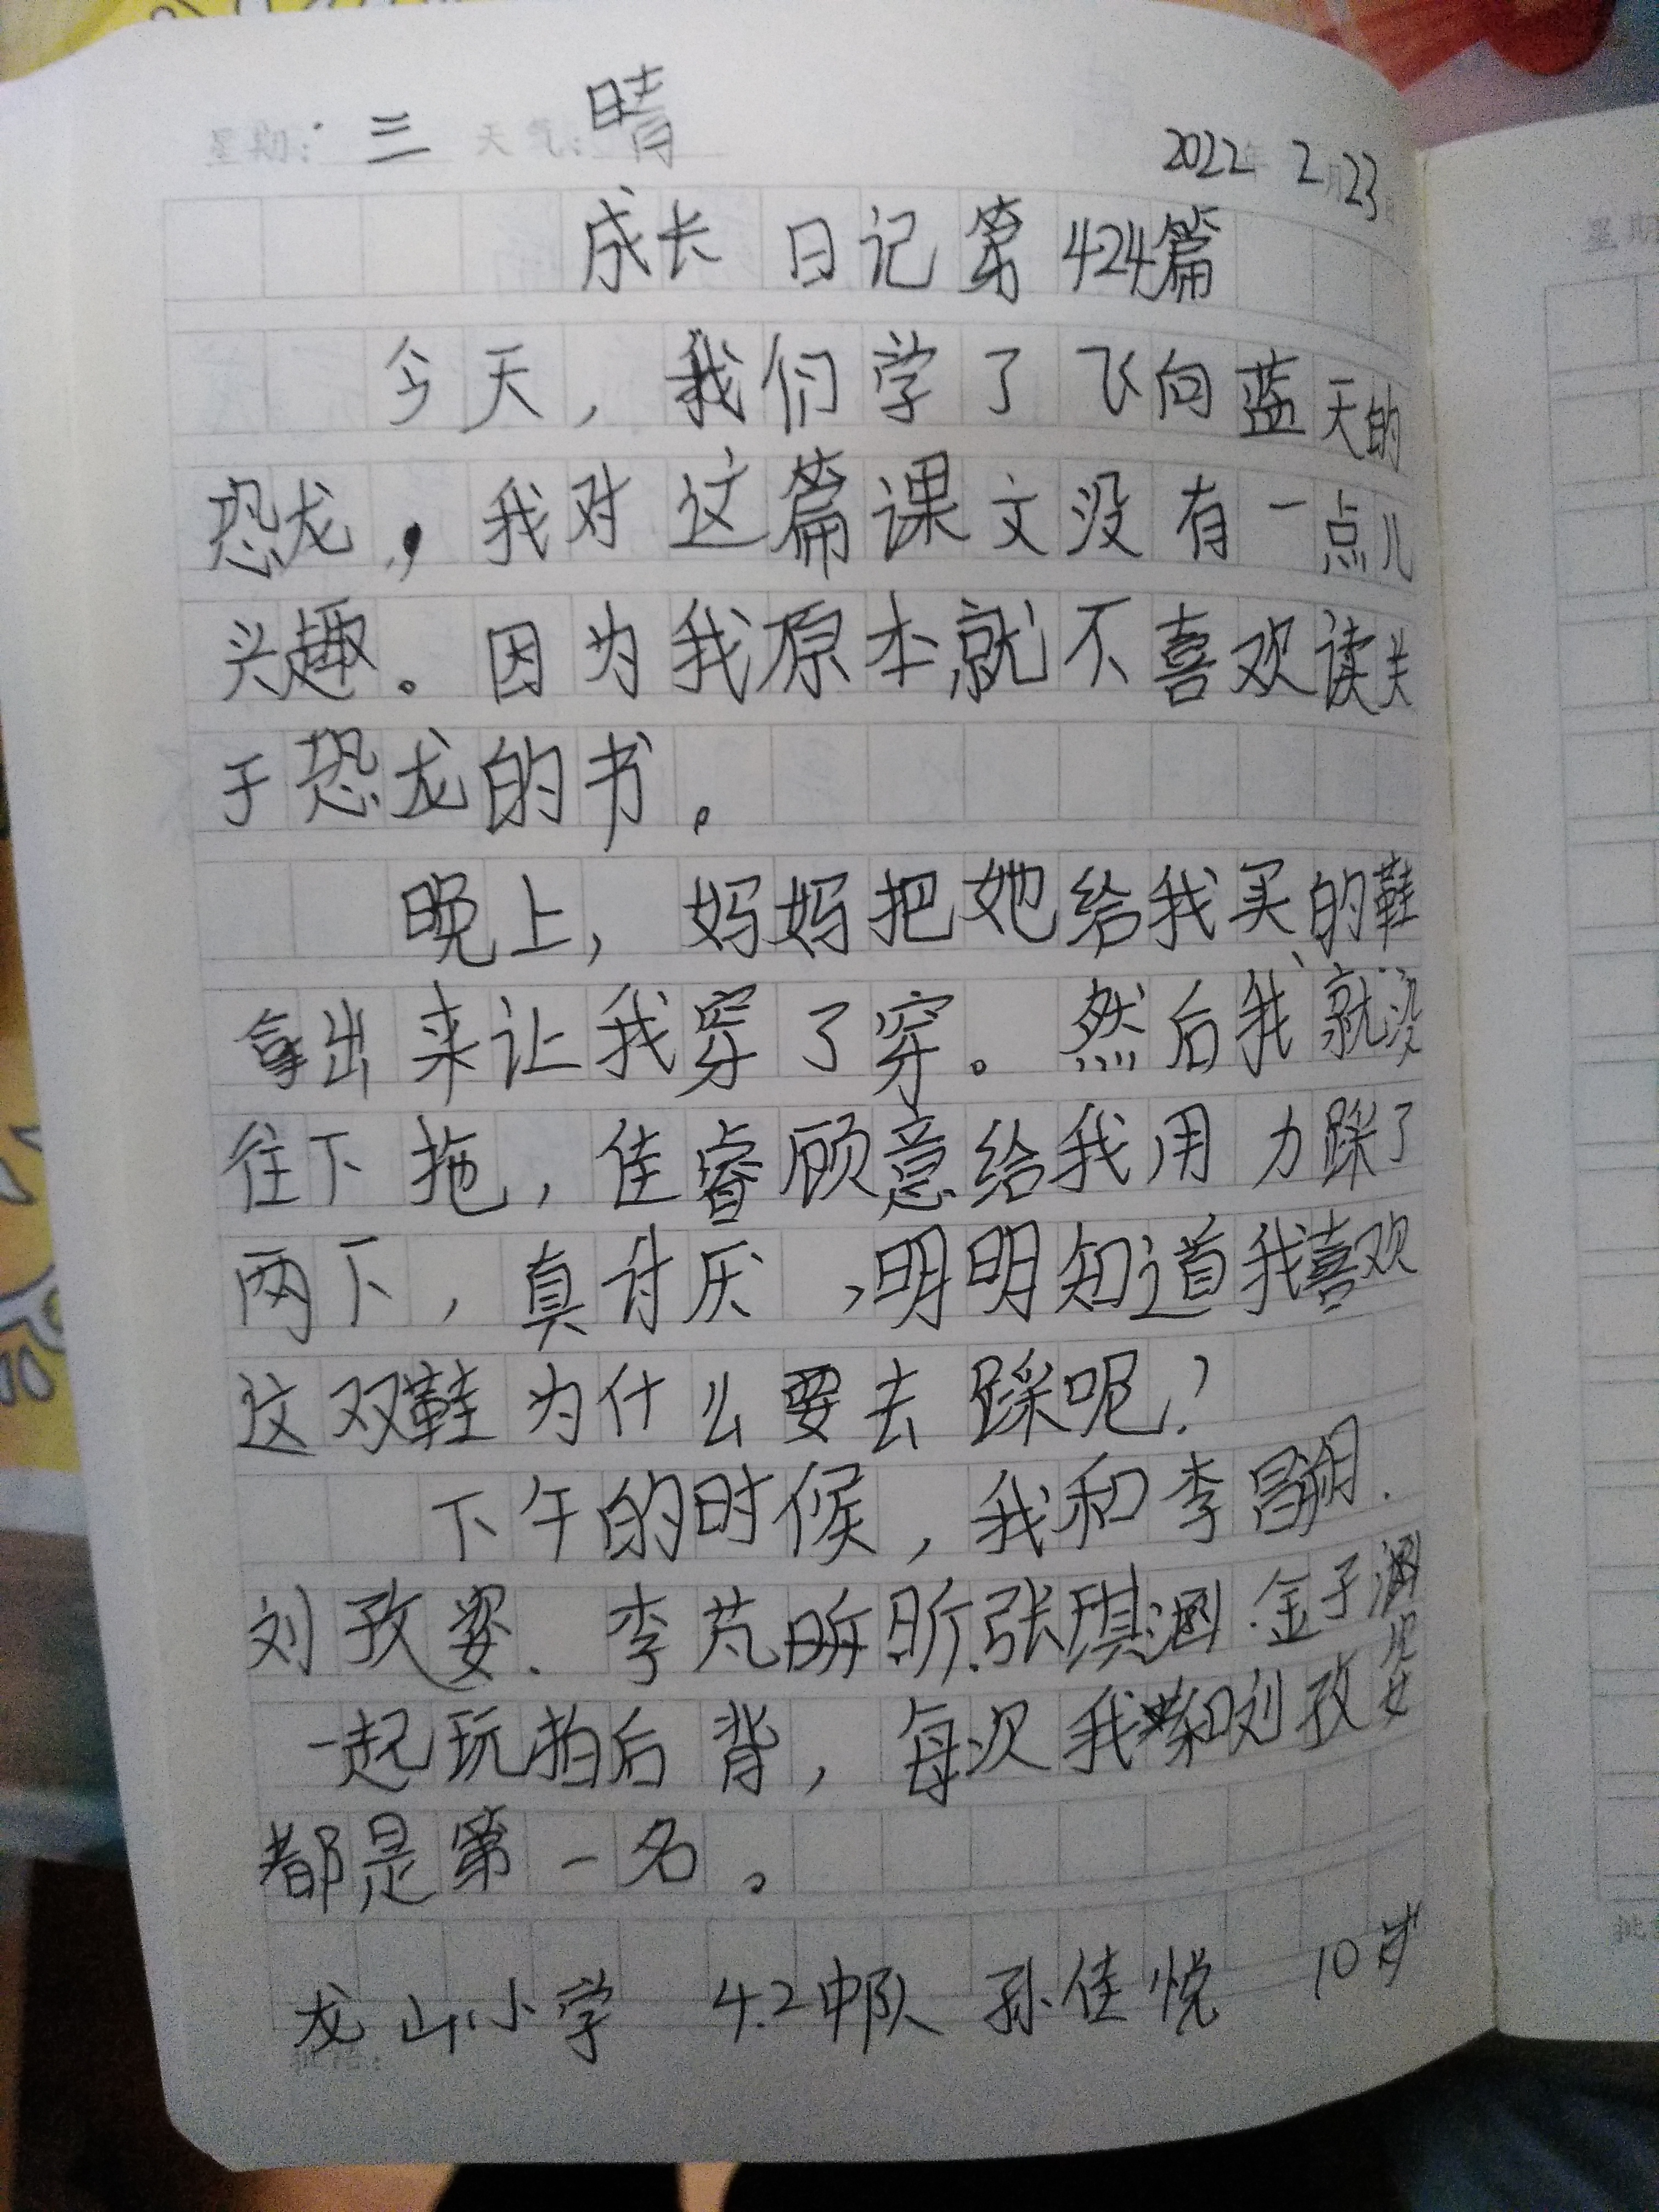 星期：三 天气：晴 2022年2月23日
成长日记第424篇
今天，我们学了飞向蓝天的
恐龙，我对这篇课文没有一点儿
兴趣。因为我原本就不喜欢读关
于恐龙的书。
晚上，妈妈把她给我买的鞋
拿出来让我穿了穿。然后我就没
往下拖，佳睿顾意给我用力踩了
两下，真讨厌，明明知道我喜欢
这双鞋为什么要去踩呢？
下午的时候，我和李昌翮、
刘孜姿、李芃昕、张琪涵、金子涵
一起玩拍后背，每次我和刘孜姿
都是第一名。
龙山小学 4.2中队 孙佳悦 10岁
批语：
星期